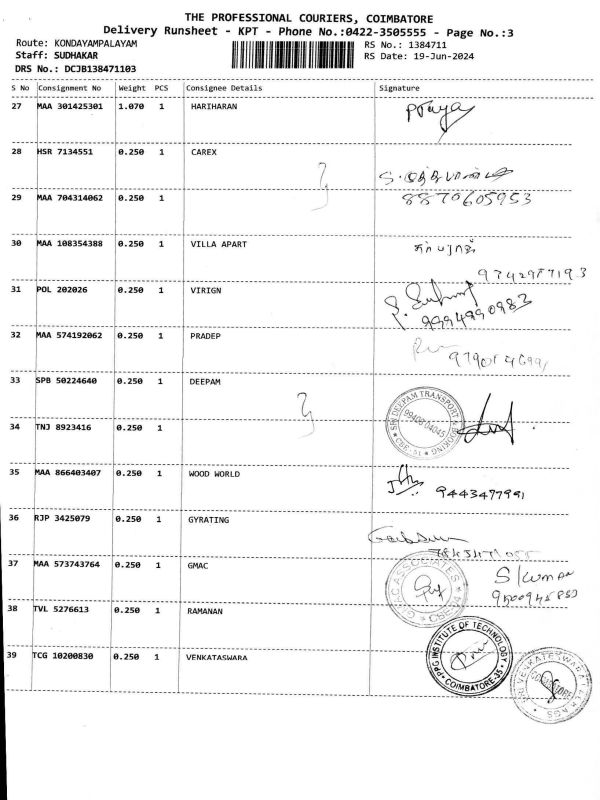 THE PROFESSIONAL COURIERS, COIMBATORE
Delivery Runsheet - KPT - Phone No.:0422-3505555 - Page No.:3
Route: KONDAYAMPALAYAM RS No.: 1384711
Staff: SUDHAKAR RS Date: 19-Jun-2024
DRS No.: DCJB138471103
S No Consignment No Weight PCS Consignee Details Signature
27 MAA 301425301 1.070 1 HARIHARAN
28 HSR 7134551 0.250 1 CAREX
29 MAA 704314062 0.250 1 8870605953
30 MAA 108354388 0.250 1 VILLA APART
9742957193
31 POL 202026 0.250 1 VIRIGN
9994990983
32 MAA 574192062 0.250 1 PRADEP
33 SPB 50224640 0.250 1 DEEPAM
SRI DEEPAM TRANSPORT
99408 04045
34 TNJ 8923416 0.250 1
35 MAA 866403407 0.250 1 WOOD WORLD
9443477991
36 RJP 3425079 0.250 1 GYRATING
37 MAA 573743764 0.250 1 GMAC
S/kumar
GMAC ASSOCIATES
38 TVL 5276613 0.250 1 RAMANAN
PPG INSTITUTE OF TECHNOLOGY
COIMBATORE-35
39 TCG 10200830 0.250 1 VENKATASWARA